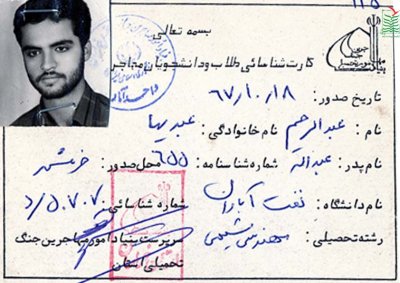 بسمه تعالی
کارت شناسائی طلاب و دانشجویان مهاجر
تاریخ صدور: ۶۷/۱۰/۱۸
نام: عبدالرحیم نام خانوادگی: عیدیها
نام پدر: عبداله شماره شناسنامه: ۶۵۵ محل صدور: خرمشهر
نام دانشگاه: نفت آبادان شماره شناسائی: ۵۰۷۰۷/د
رشته تحصیلی: مهندسی شیمی سرپرست بنیاد امور مهاجرین جنگ
تحمیلی استان